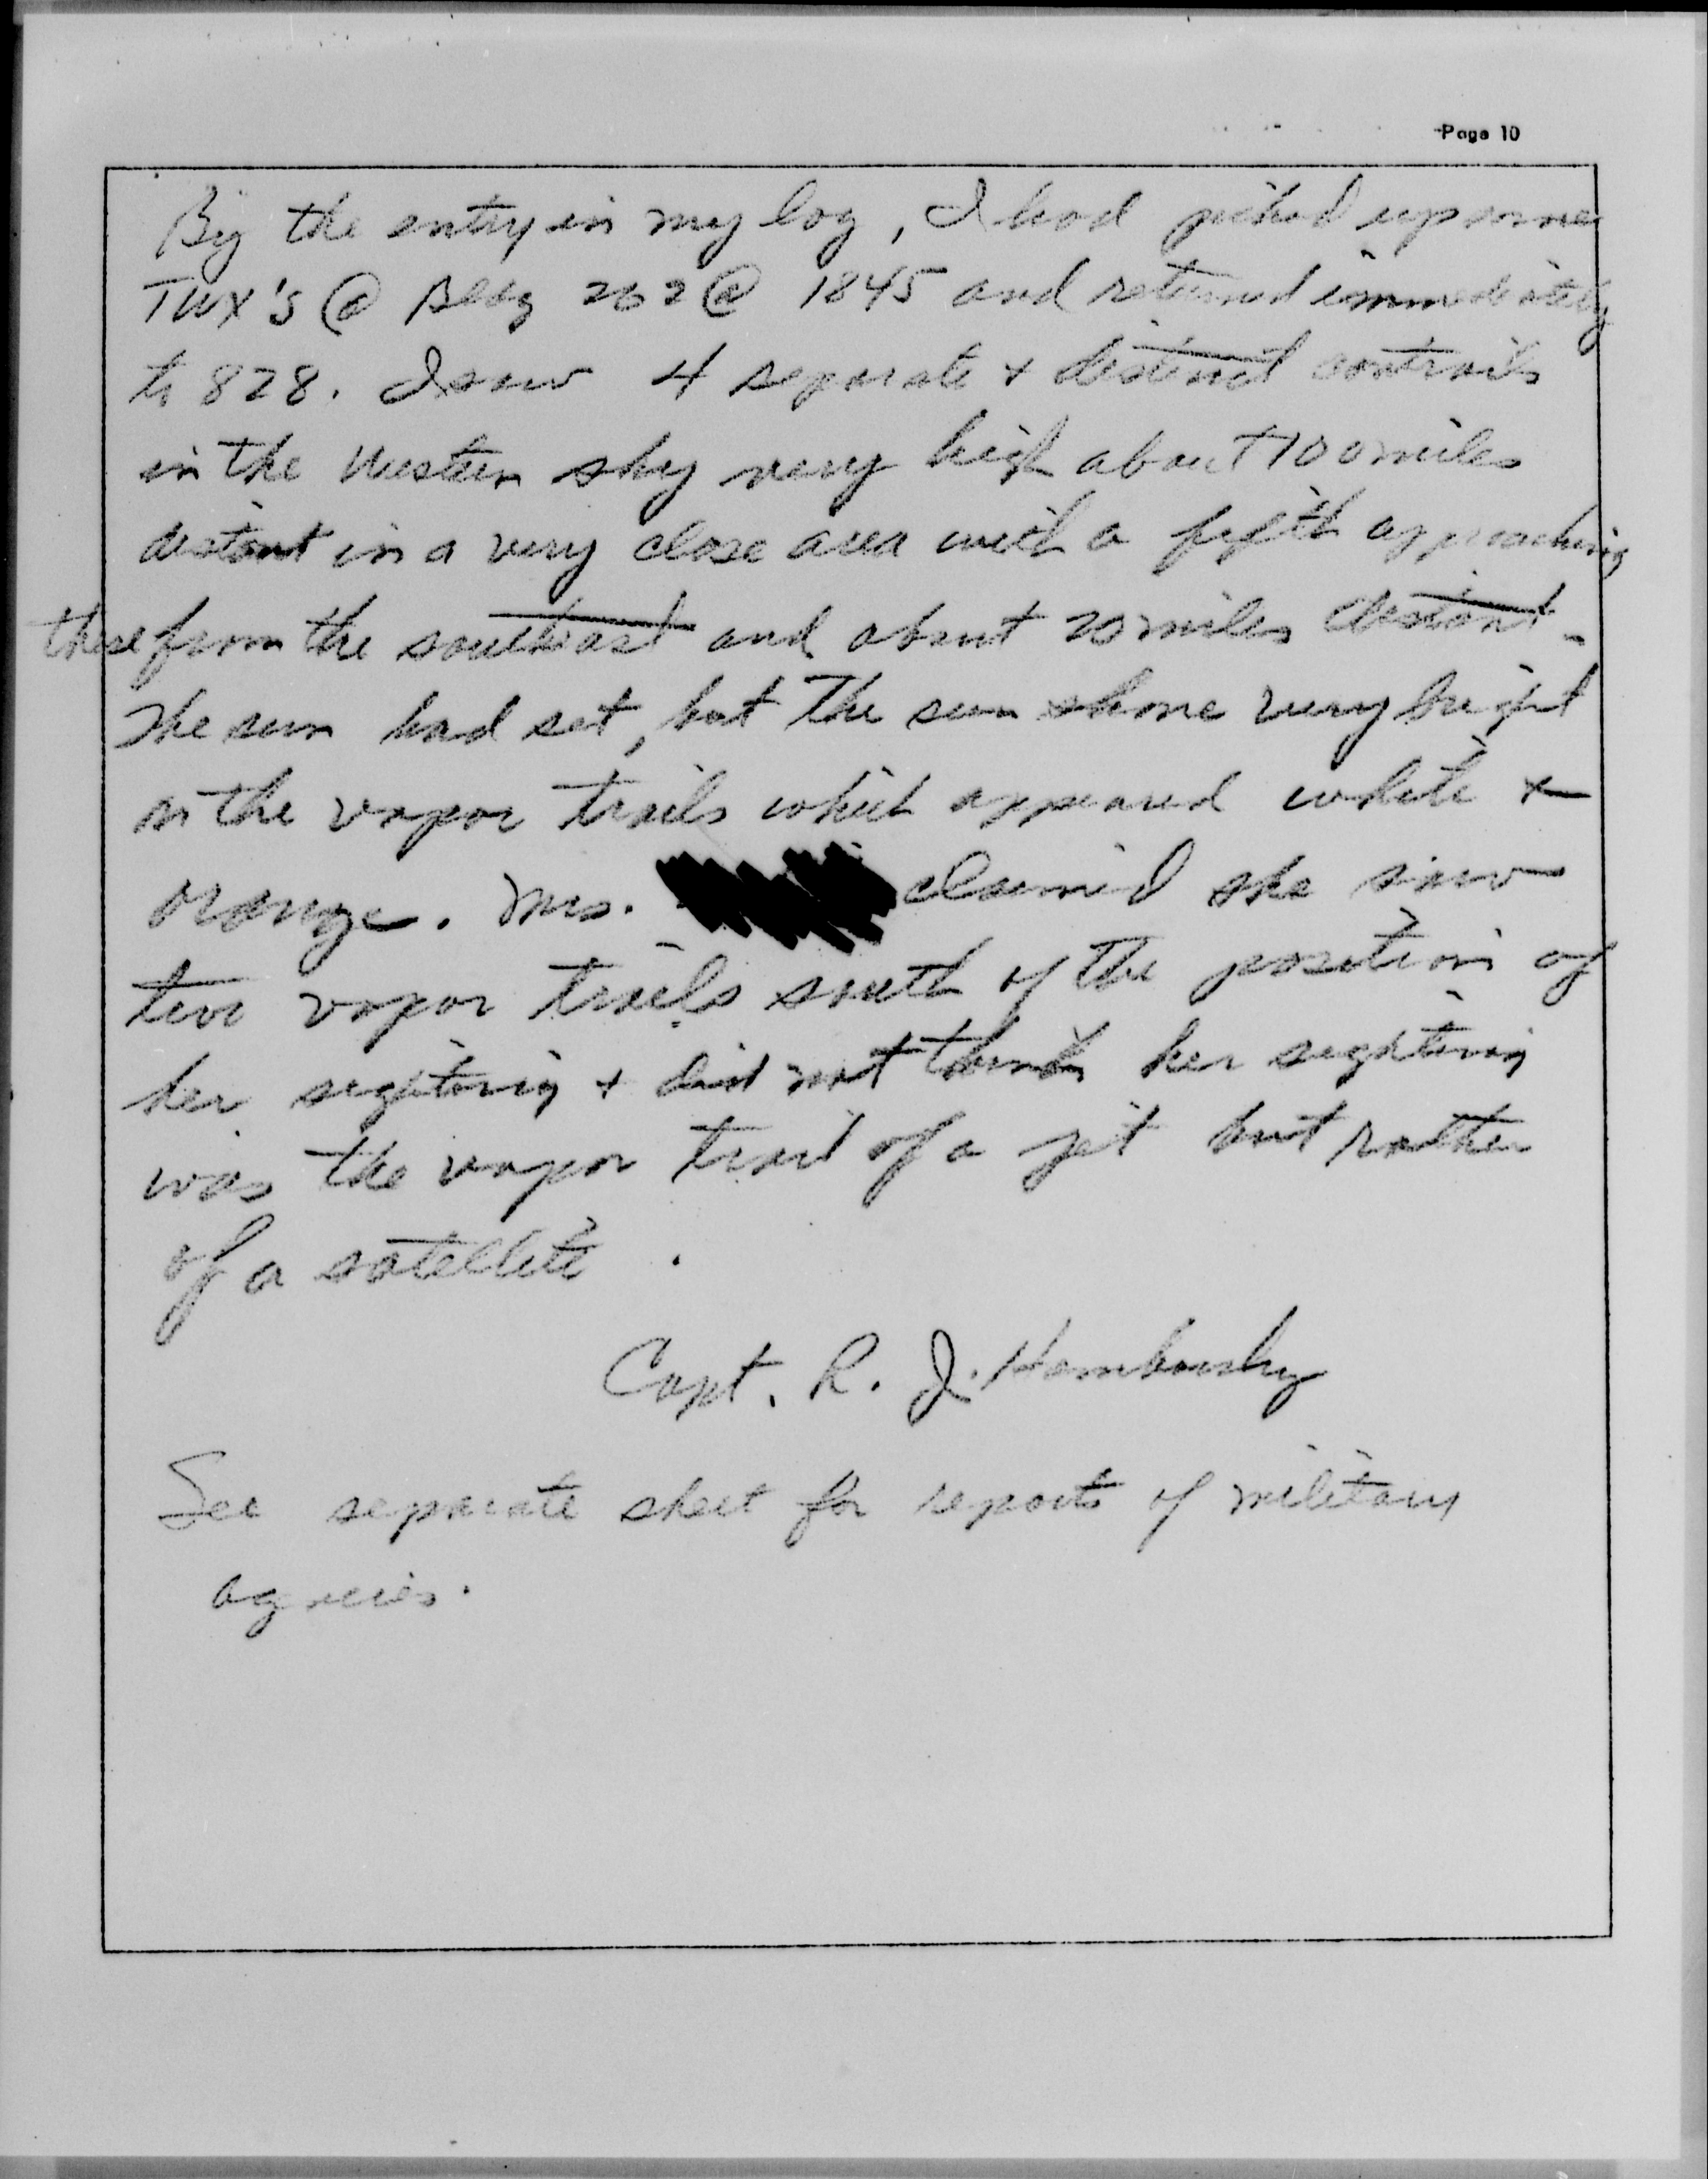 Page 10
By the entry in my log, I had picked up some
TWX's @ Bldg 262 @ 1845 and returned immediately
to 828. I saw 4 separate + distinct contrails
in the Western sky very high about 100 miles
distant in a very close area with a fifth approaching
these from the southeast and about 20 miles distant.
The sun had set, but the sun shone very bright
on the vapor trails which appeared white +
orange. Mrs. claimed she saw
two vapor trails south of the position of
her sighting + did not think her sighting
was the vapor trail of a jet but rather
of a satellite.
Capt. R. J.
See separate sheet for reports of military
agencies.